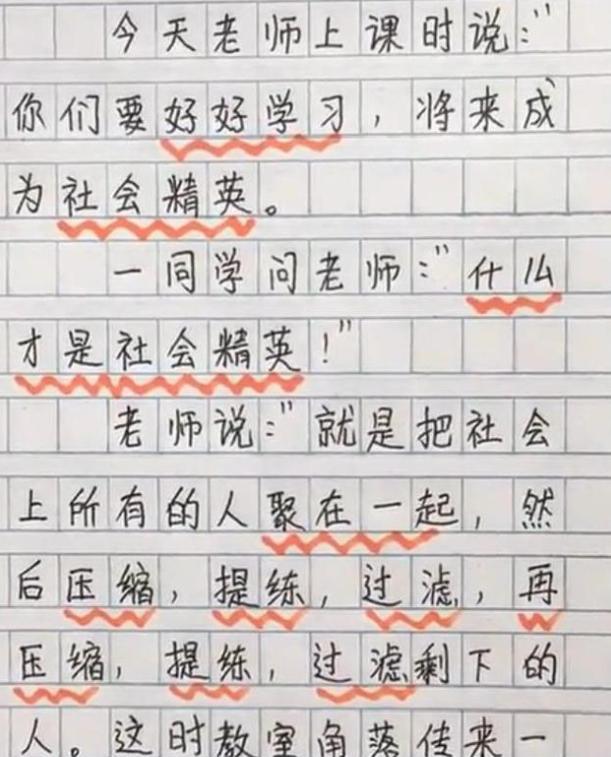 今天老师上课时说:"
你们要好好学习,将来成
为社会精英。
一同学问老师:"什么
才是社会精英!"
老师说:"就是把社会
上所有的人聚在一起,然
后压缩,提练,过滤,再
压缩,提练,过滤剩下的
人。这时教室角落传来一